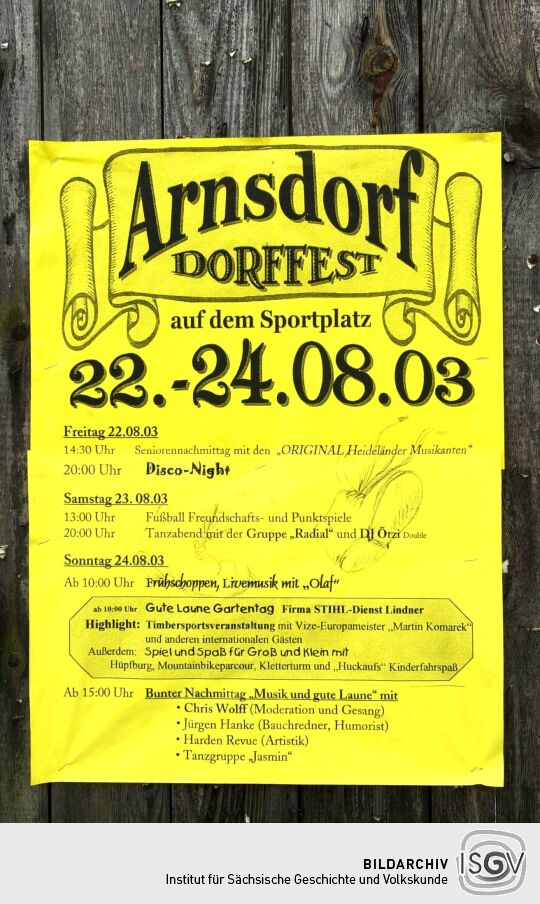 Arnsdorf
DORFFEST
auf dem Sportplatz
22.-24.08.03
Freitag 22.08.03
14:30 Uhr Seniorennachmittag mit den „ORIGINAL Heideländer Musikanten“
20:00 Uhr Disco-Night
Samstag 23. 08.03
13:00 Uhr Fußball Freundschafts- und Punktspiele
20:00 Uhr Tanzabend mit der Gruppe „Radial“ und DJ Ötzi Double
Sonntag 24.08.03
Ab 10:00 Uhr Frühschoppen, Livemusik mit „Olaf“
ab 10:00 Uhr Gute Laune Gartentag Firma STIHL-Dienst Lindner
Highlight: Timbersportveranstaltung mit Vize-Europameister „Martin Komarek“
und anderen internationalen Gästen
Außerdem: Spiel und Spaß für Groß und Klein mit
Hüpfburg, Mountainbikeparcour, Kletterturm und „Huckaufs“ Kinderfahrspaß
Ab 15:00 Uhr Bunter Nachmittag „Musik und gute Laune“ mit
• Chris Wolff (Moderation und Gesang)
• Jürgen Hanke (Bauchredner, Humorist)
• Harden Revue (Artistik)
• Tanzgruppe „Jasmin“
BILDARCHIV
Institut für Sächsische Geschichte und Volkskunde
ISGV